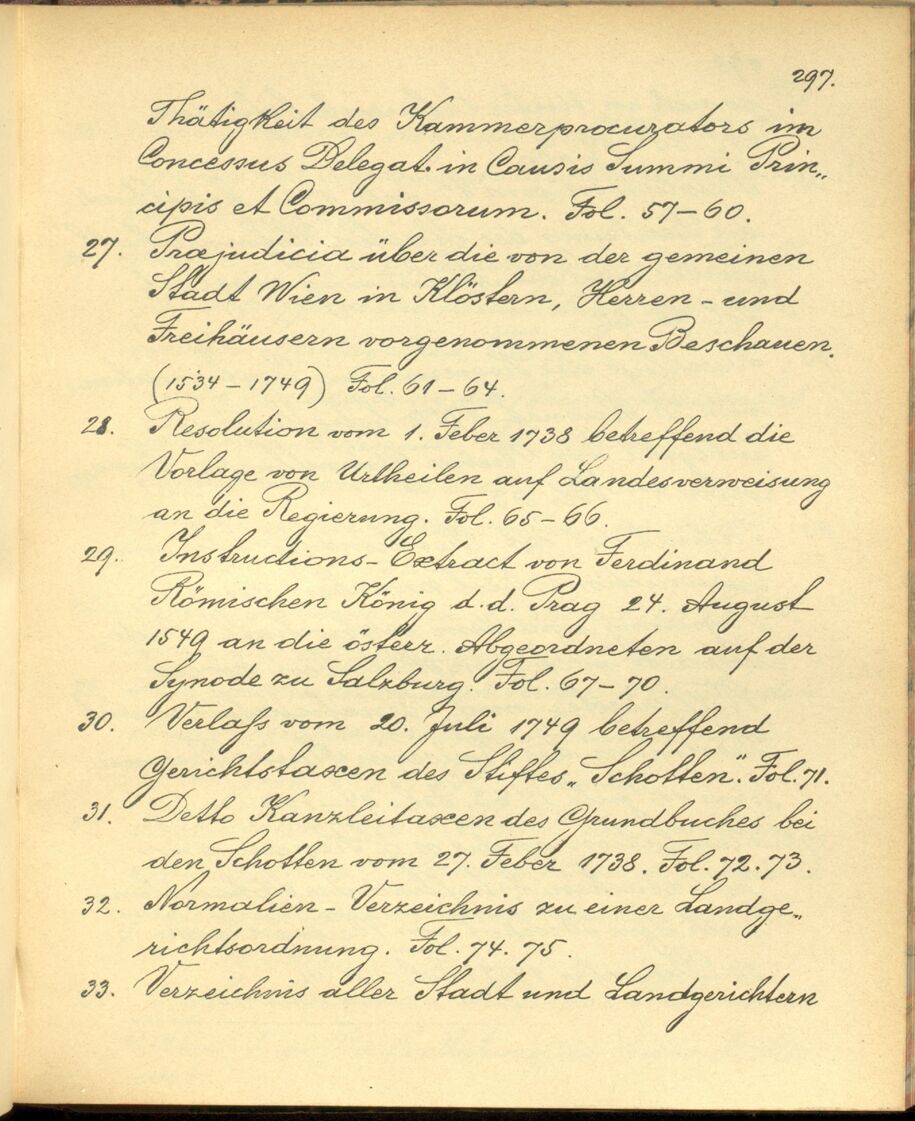 297.
Thätigkeit des Kammerprocurators im
Concessus Delegat. in Causis Summi Prin„
cipis et Commissorum. Fol. 57–60.
27. Præjudicia über die von der gemeinen
Stadt Wien in Klöstern, Herren- und
Freihäusern vorgenommenen Beschauen.
(1534–1749) Fol. 61–64.
28. Resolution vom 1. Feber 1738 betreffend die
Vorlage von Urtheilen auf Landesverweisung
an die Regierung. Fol. 65–66.
29. Instructions-Extract von Ferdinand
Römischen König d. d. Prag 24. August
1549 an die österr. Abgeordneten auf der
Synode zu Salzburg. Fol. 67–70.
30. Verlaſs vom 20. Juli 1749 betreffend
Gerichtstaxen des Stiftes „Schotten“. Fol. 71.
31. Detto Kanzleitaxen des Grundbuches bei
den Schotten vom 27. Feber 1738. Fol. 72. 73.
32. Normalien-Verzeichnis zu einer Landge„
richtsordnung. Fol. 74. 75.
33. Verzeichnis aller Stadt und Landgerichtern